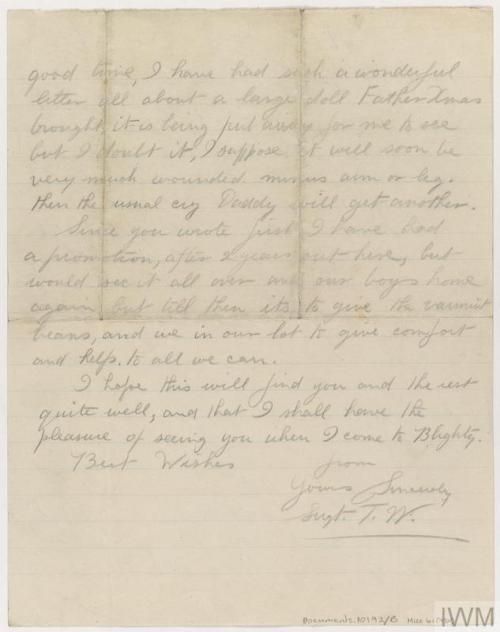 good time, I have had such a wonderful
letter all about a large doll Father Xmas
brought, it is being put away for me to see
but I doubt it, I suppose it will soon be
very much wounded minus arm or leg.
then the usual cry Daddy will get another.
Since you wrote first I have had
a promotion, after 2 years out here, but
would see it all over and our boys home
again but till then its to give the varmint
beans, and we in our lot to give comfort
and help. to all we can.
I hope this will find you and the rest
quite well, and that I shall have the
pleasure of seeing you when I come to Blighty.
Best Wishes from
Yours Sincerely
Sergt. T. W.
DOCUMENTS.10192/B
IWM